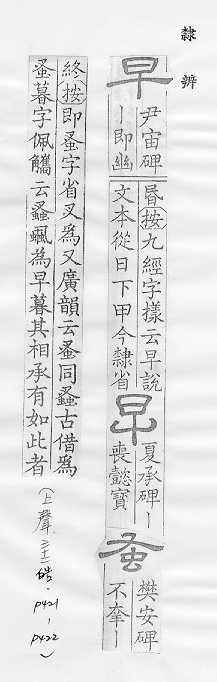 隸辨
早
尹宙碑
丨即幽
昬按九經字樣云早說
文本從日下甲今隸省
早
夏承碑丨
喪懿寶
蚤
樊安碑
不丨
終按即蚤字省叉為又廣韻云蚤同古借為
蚤暮字佩觿云颯為早暮其相承有如此者
(上聲 三十二 皓・P421-P422)